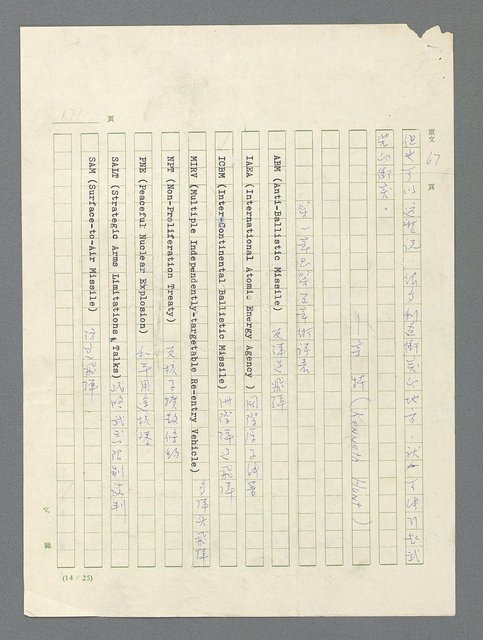 原文 67 頁
但也可以這麼說
裝的衝突。
(Kenneth Hunt)
ABM (Anti-Ballistic Missile) 反彈道飛彈
IAEA (International Atomic Energy Agency ) 國際原子能總署
ICBM (Inter-Continental Ballistic Missile) 洲際彈道飛彈
MIRV (Multiple Independently-targetable Re-entry Vehicle) 多彈頭飛彈
NPT (Non-Proliferation Treaty) 反核子擴散條約
PNE (Peaceful Nuclear Explosion) 和平用途核爆
SALT (Strategic Arms Limitations Talks) 戰略武器限制談判
SAM (Surface-to-Air Missile) 防空飛彈
頁
文稿
(14×25)